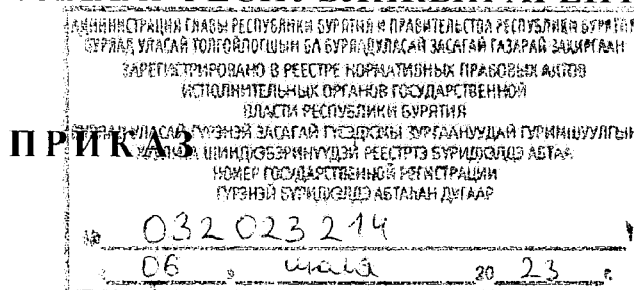 АДМИНИСТРАЦИЯ ГЛАВЫ РЕСПУБЛИКИ БУРЯТИЯ И ПРАВИТЕЛЬСТВА РЕСПУБЛИКИ БУРЯТИЯ
БУРЯАД УЛАСАЙ ТОЛГОЙЛОГШЫН БА БУРЯАД УЛАСАЙ ЗАСАГАЙ ГАЗАРАЙ ЗАХИРГААН
ЗАРЕГИСТРИРОВАНО В РЕЕСТРЕ НОРМАТИВНЫХ ПРАВОВЫХ АКТОВ
ИСПОЛНИТЕЛЬНЫХ ОРГАНОВ ГОСУДАРСТВЕННОЙ
ВЛАСТИ РЕСПУБЛИКИ БУРЯТИЯ
ПРИКАЗ
УЛАСАЙ ГҮРЭНЭЙ ЗАСАГАЙ
РЕЕСТРТЭ БҮРИДХЭЛДЭ АБТАА
НОМЕР ГОСУДАРСТВЕННОЙ РЕГИСТРАЦИИ
ГҮРЭНЭЙ БҮРИДХЭЛДЭ АБТАҺАН ДУГААР
№ 032023214
" 06 " 20 23 г.